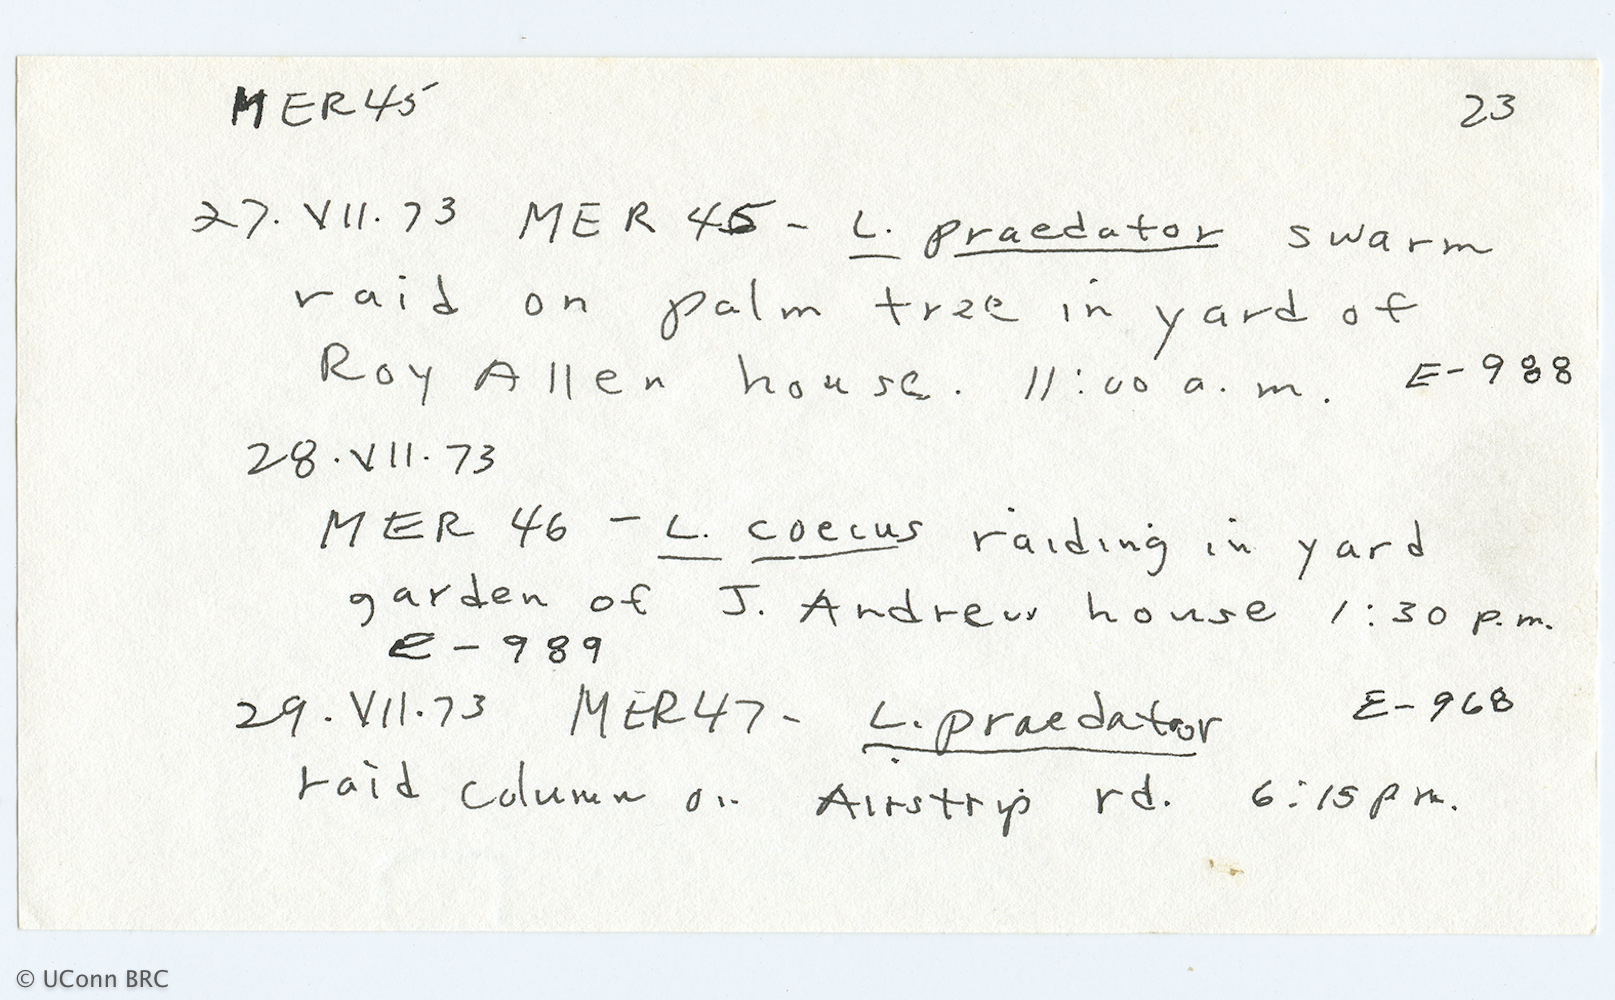 MER45 23
27.VII.73 MER 45 - L. praedator swarm
raid on palm tree in yard of
Roy Allen house. 11:00 a.m. E-988
28.VII.73
MER 46 - L. coecus raiding in yard
garden of J. Andrew house 1:30 p.m.
E-989
29.VII.73 MER47- L. praedator E-968
raid column on Airstrip rd. 6:15 p.m.
© UConn BRC